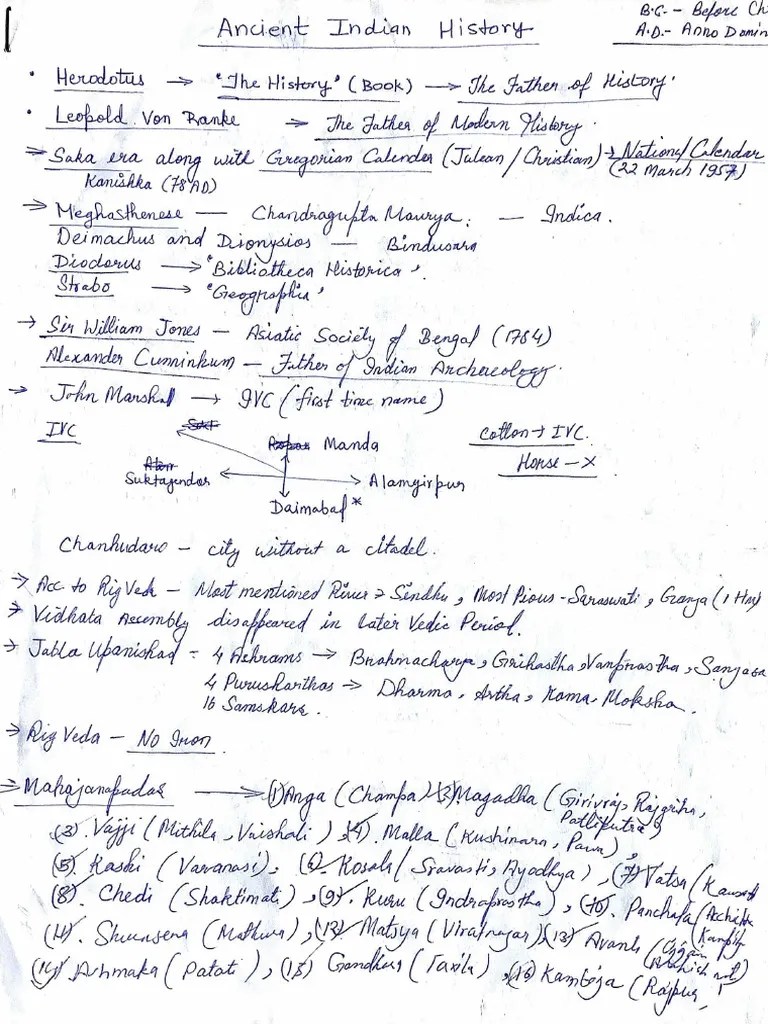 Ancient Indian History
B.C. - Before Ch
A.D. - Anno Domin
• Herodotus → "The History" (Book) → The Father of History.
• Leopold Von Ranke → The Father of Modern History.
⇒ Saka era along with Gregorian Calender (Julean / Christian) → National Calendar
Kanishka (78 AD) (22 March 1957)
→ Meghasthenese — Chandragupta Maurya. — Indica.
Deimachus and Dionysios — Bindusara
Diodorus → 'Bibliotheca Historica'.
Strabo → 'Geographia'
→ Sir William Jones — Asiatic Society of Bengal (1784)
Alexander Cunninkum — Father of Indian Archereology.
→ John Marshal → IVC (first time name)
IVC
Manda
Suktagendor
Alamgirpur
Daimabad *
Cotton → IVC.
Horse — X
Chanhudaro — city without a citadel.
→ Acc. to Rig Veda — Most mentioned River → Sindhu, Most Pious - Saraswati, Ganga (1 time)
→ Vidhata Assembly disappeared in later Vedic Period.
→ Jabla Upanishad = 4 Ashrams → Brahmacharya, Grihastha, Vanprastha, Sanyasa
4 Purusharthas → Dharma, Artha, Kama, Moksha.
16 Samskara.
→ Rig Veda — No Iron.
⇒ Mahajanapadas → (1) Anga (Champa) Magadha (Girivraj, Rajgriha,
Patliputra)
(3) Vajji (Mithila, Vaishali), (4) Malla (Kushinara, Pawa),
(5) Kashi (Varanasi), (6) Kosala (Sravasti, Ayodhya), (7) Vatsa (Kausa
(8) Chedi (Shaktimati), (9) Kuru (Indraprastha), (10) Panchala (
(11) Shursena (Mathura), (12) Matsya (Viratnagar), (13) Avanti (
(14) Ashmaka (Patati), (15) Gandhar (Taxila), (16) Kamboja (Rajpur,